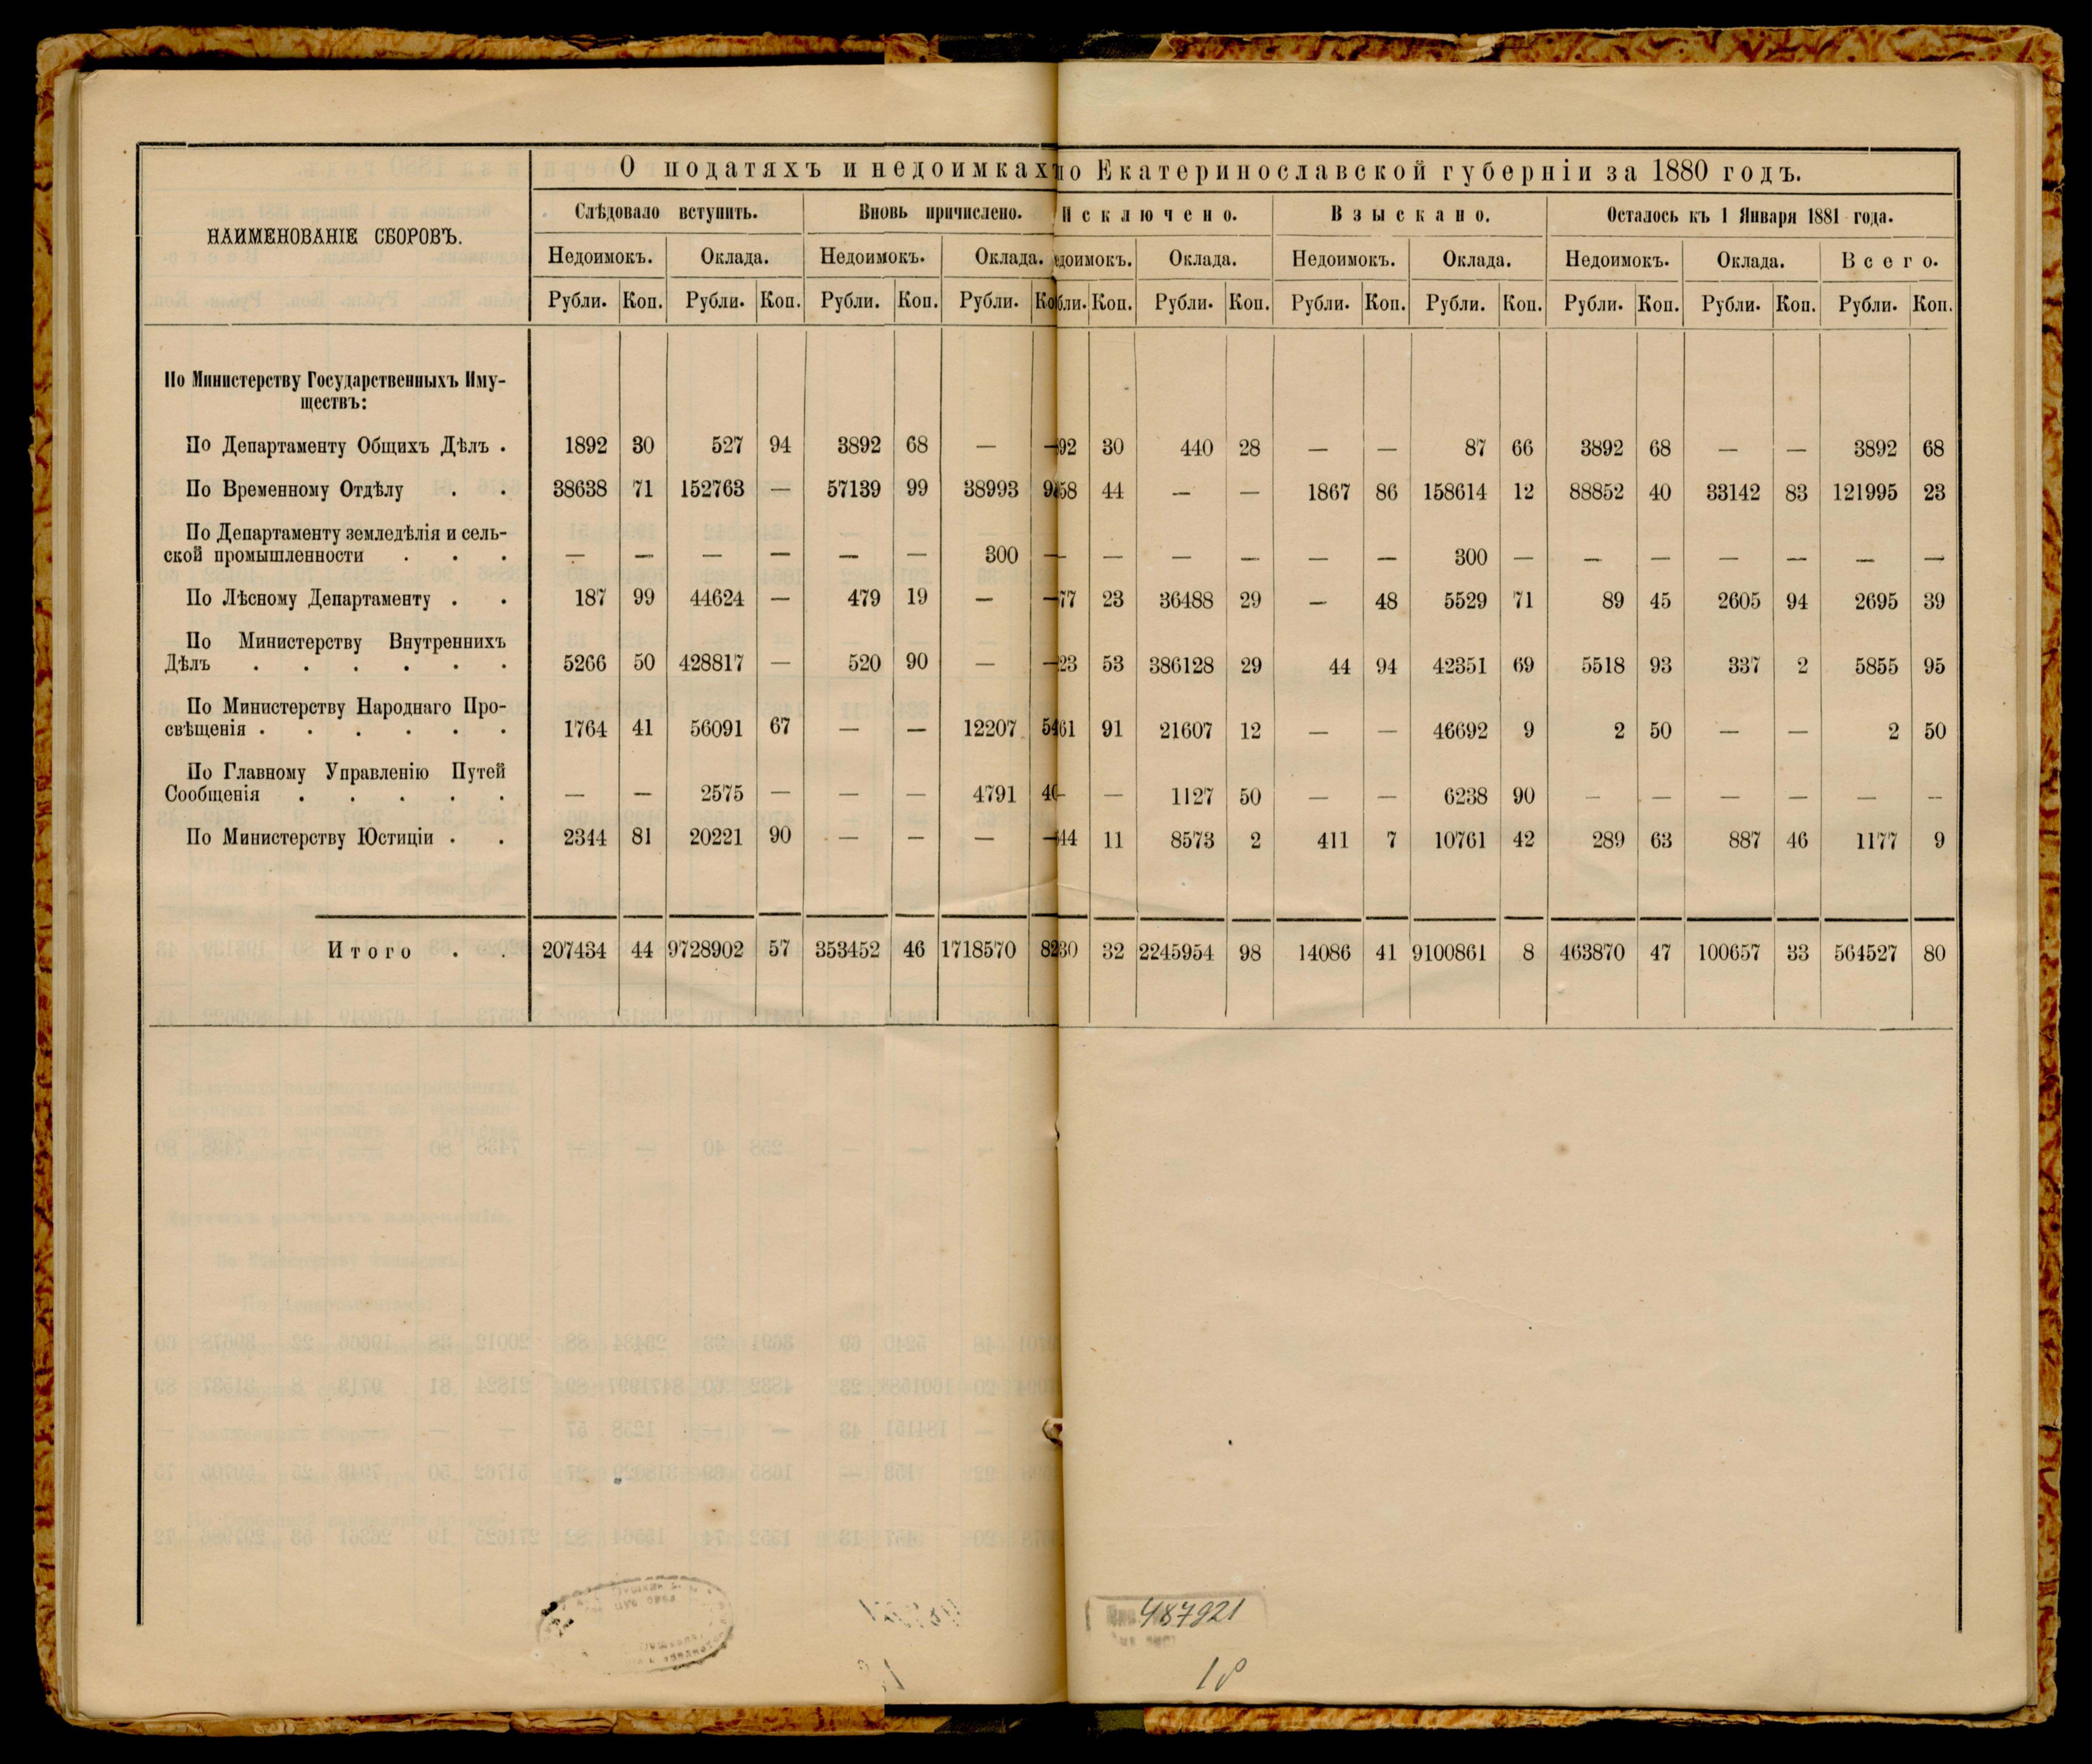 О податяхъ и недоимкахъ по Екатеринославской губерніи за 1880 годъ.
НАИМЕНОВАНІЕ СБОРОВЪ.
Слѣдовало вступить. Вновь причислено. Исключено. Взыскано. Осталось къ 1 Января 1881 года.
Недоимокъ. Оклада. Недоимокъ. Оклада. едоимокъ. Оклада. Недоимокъ. Оклада. Недоимокъ. Оклада. Всего.
Рубли. Коп. Рубли. Коп. Рубли. Коп. Рубли. Ко бли. Коп. Рубли. Коп. Рубли. Коп. Рубли. Коп. Рубли. Коп. Рубли. Коп. Рубли. Коп.
По Министерству Государственныхъ Иму-
ществъ:
По Департаменту Общихъ Дѣлъ . 1892 30 527 94 3892 68 — — 92 30 440 28 — — 87 66 3892 68 — — 3892 68
По Временному Отдѣлу . . 38638 71 152763 — 57139 99 38993 9 58 44 — — 1867 86 158614 12 88852 40 33142 83 121995 23
По Департаменту земледѣлія и сель-
ской промышленности . . . — — — — — — 300 — — — — — — 300 — — — — — — —
По Лѣсному Департаменту . . 187 99 44624 — 479 19 — — 77 23 36488 29 — 48 5529 71 89 45 2605 94 2695 39
По Министерству Внутреннихъ
Дѣлъ . . . . . . 5266 50 428817 — 520 90 — — 23 53 386128 29 44 94 42351 69 5518 93 337 2 5855 95
По Министерству Народнаго Про-
свѣщенія . . . . . . 1764 41 56091 67 — — 12207 5 61 91 21607 12 — — 46692 9 2 50 — — 2 50
По Главному Управленію Путей
Сообщенія . . . . . — — 2575 — — — 4791 40 — — 1127 50 — — 6238 90 — — — — — —
По Министерству Юстиціи . . 2344 81 20221 90 — — — — 44 11 8573 2 411 7 10761 42 289 63 887 46 1177 9
Итого . . 207434 44 9728902 57 353452 46 1718570 82 30 32 2245954 98 14086 41 9100861 8 463870 47 100657 33 564527 80
487921
18